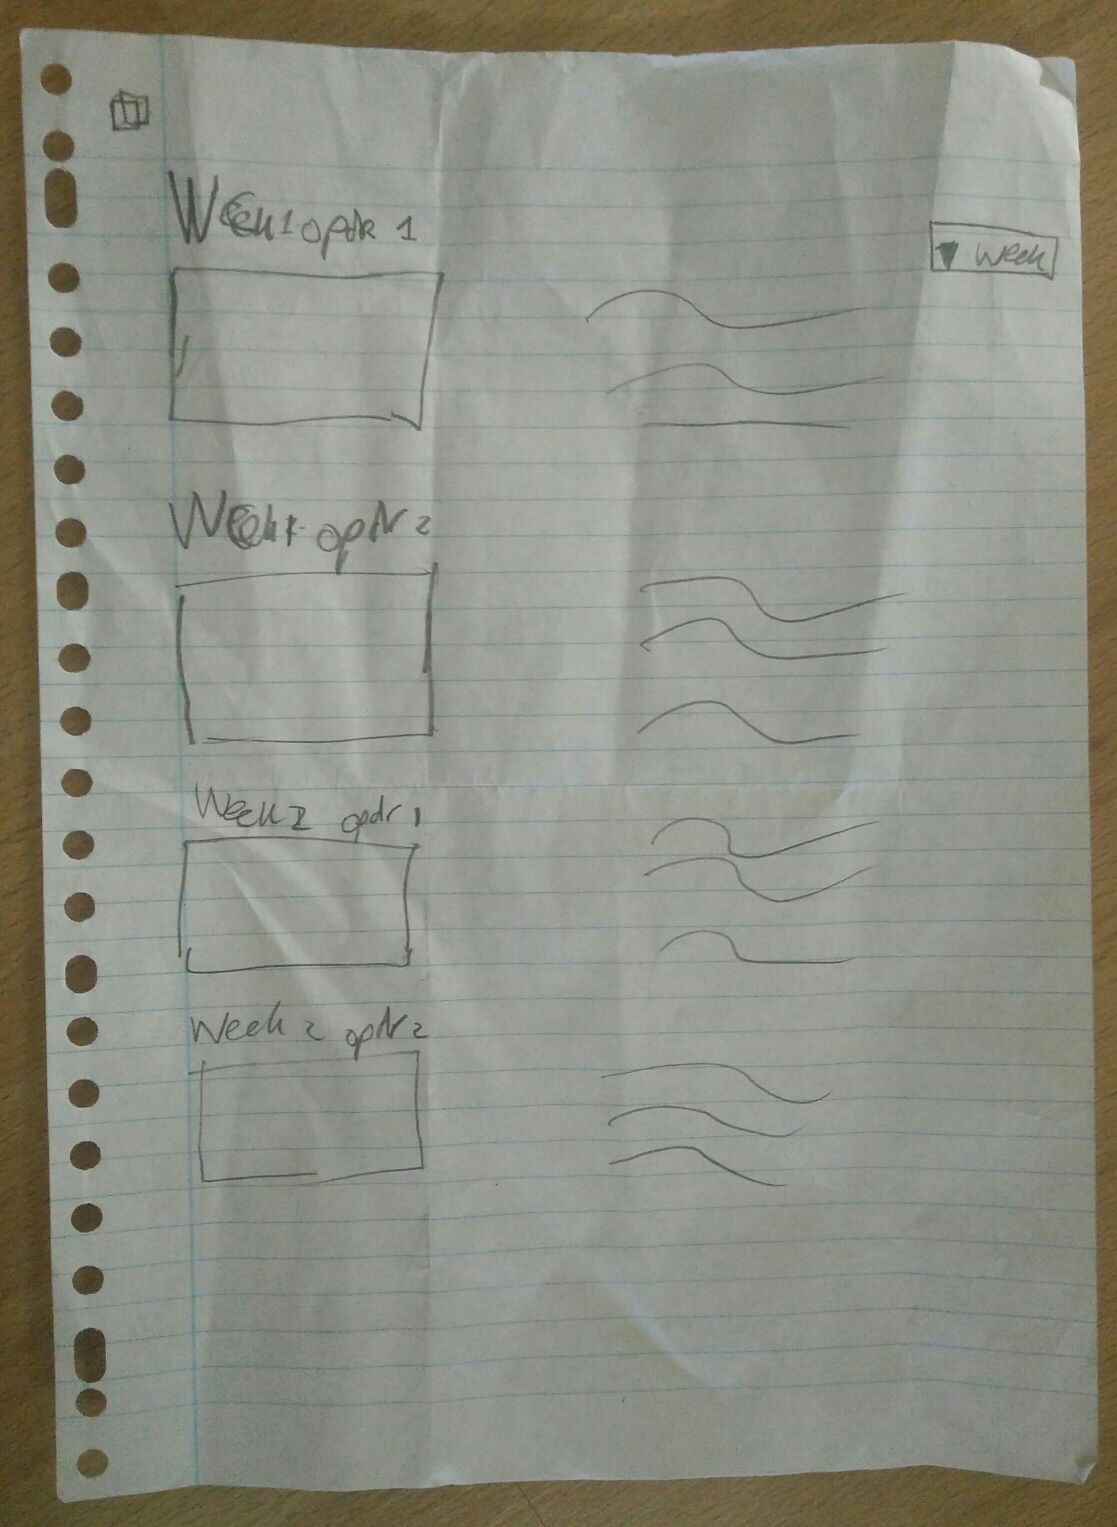 Week 1 opdr 1
▼ week
Week 1 opdr 2
Week 2 opdr 1
Week 2 opdr 2